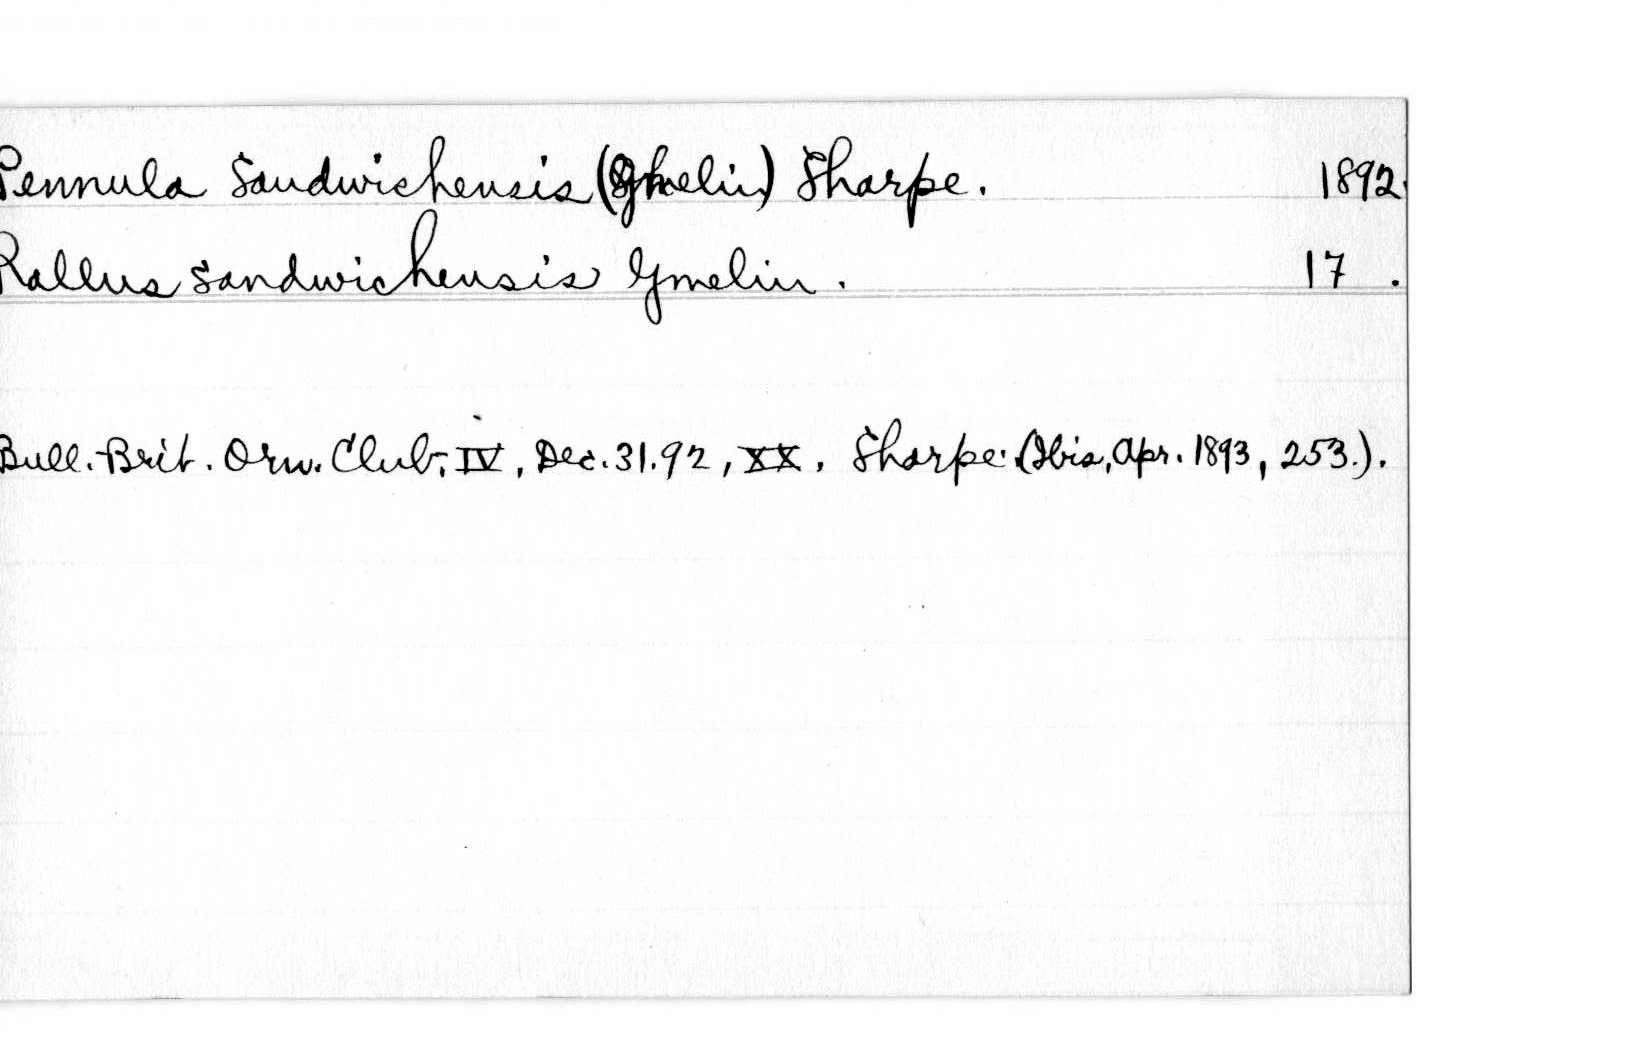 Pennula sandwichensis (Gmelin) Sharpe. 1892.
Rallus sandwichensis Gmelin. 17 .
Bull. Brit. Orn. Club, IV, Dec. 31.92, XX. Sharpe. (Ibis, Apr. 1893, 253.).